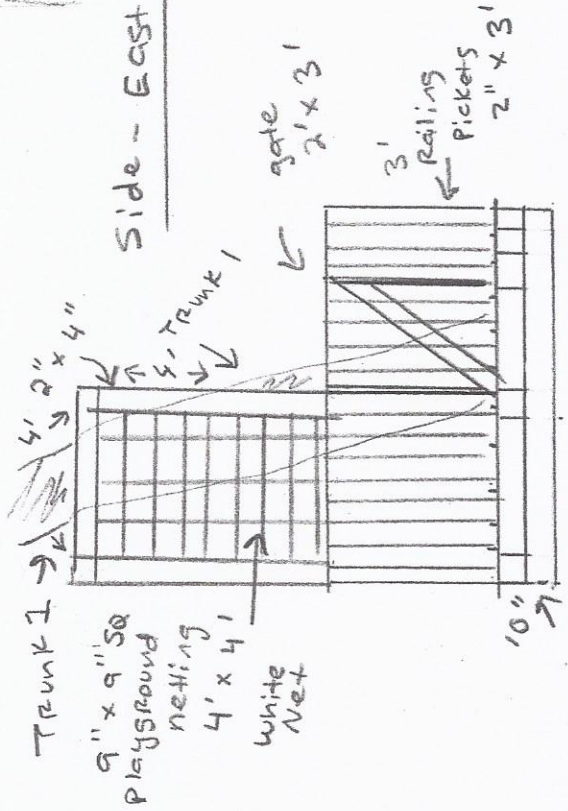 Side - East
TRunk 1
4'
2" x 4"
4'
TRunk 1
gate
2' x 3'
3'
Railing
Pickets
2" x 3'
9" x 9" SQ
Playground
netting
4' x 4'
White
Net
10"